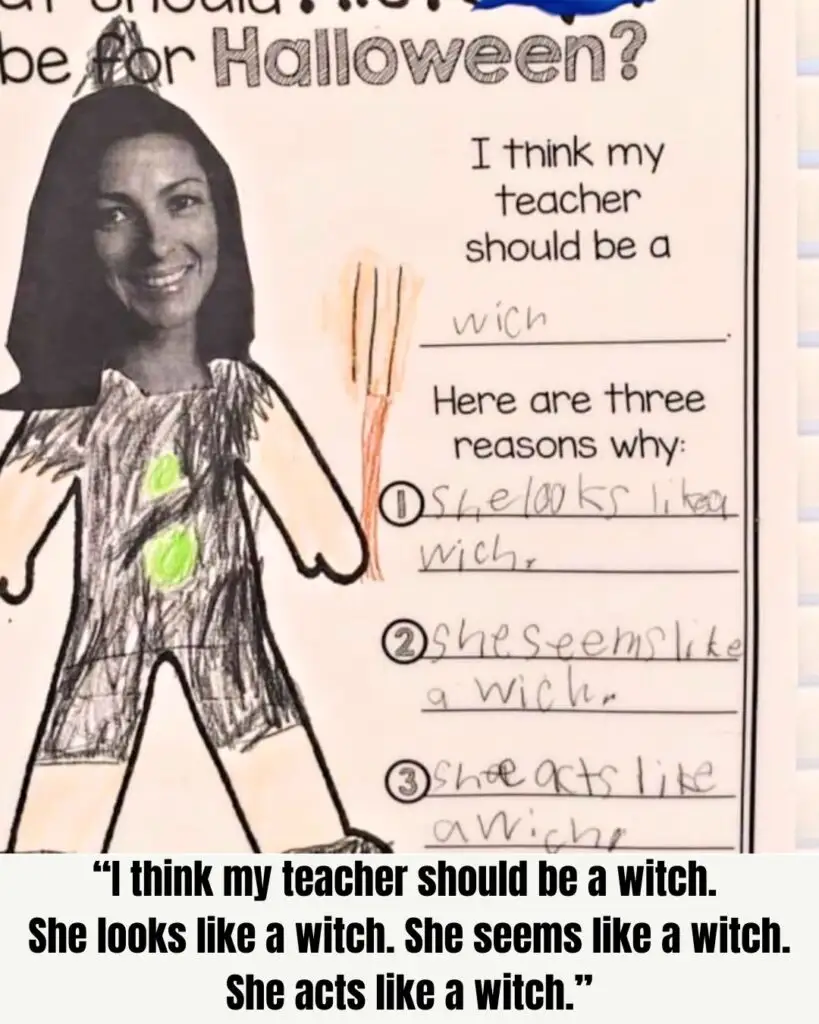 be for Halloween?
I think my
teacher
should be a
wich.
Here are three
reasons why:
① She looks like a
wich.
② She seems like
a wich.
③ Shee acts like
a wich.
“I think my teacher should be a witch.
She looks like a witch. She seems like a witch.
She acts like a witch.”